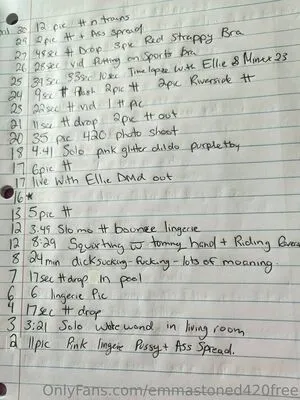 30 12 pic # n trains
29 2pic # + Ass spread
27 48sec # Drop 3pic Red Strappy Bra
26 28sec vid Putting on Sports Bra
25 31sec 53sec 10sec Timelapse with Ellie & Minxx 23
24 9sec # flash 2pic # 2pic Riverside #
23 22sec # vid 1 # pic
21 11sec # drop 2pic # out
20 35 pic 420 photo shoot
18 4:41 Solo pink glitter dildo purple toy
17 6pic #
17 live with Ellie DMd out
16 *
13 5pic #
12 3:49 Slomo # bounce lingerie
12 8:29 Squirting w tommy hand + Riding
8 24min dicksucking-fucking-lots of moaning.
7 17sec # drop in pool
6 6 lingerie Pic
4 17sec # drop
3 3:21 Solo wand in living room
2 11pic Pink lingerie Pussy + Ass Spread.
OnlyFans.com/emmastoned420free